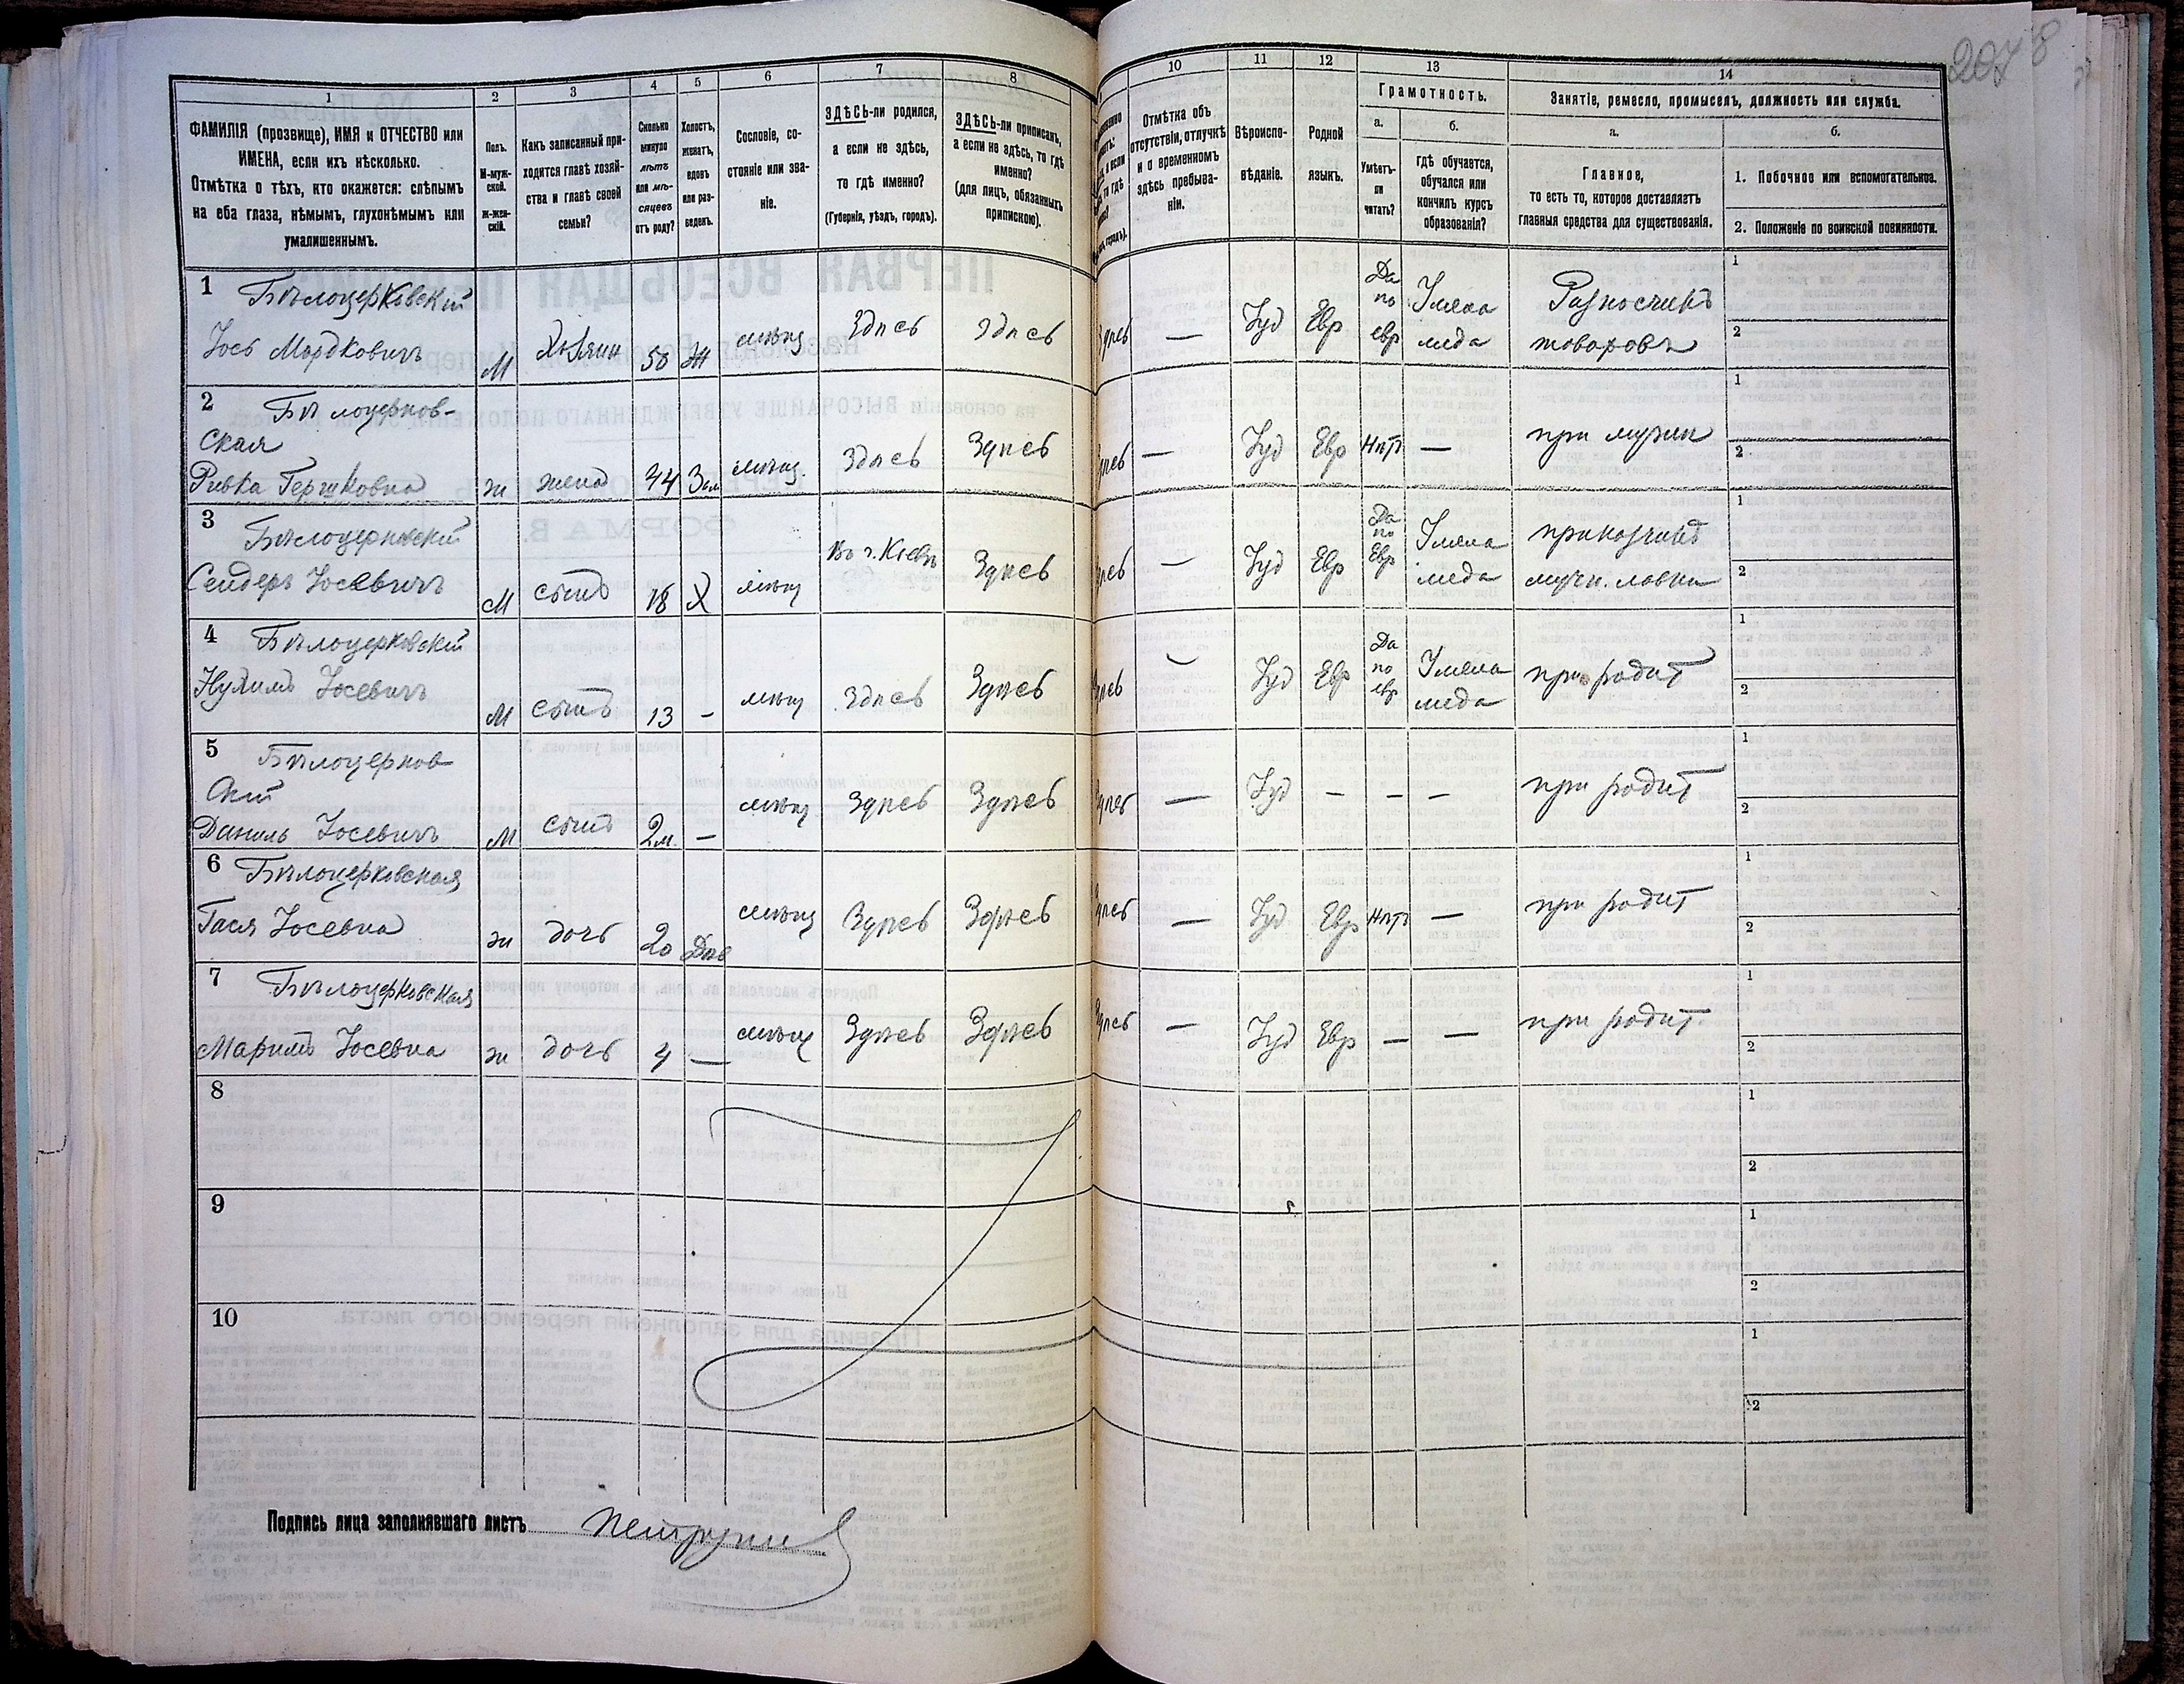 2078
1
2
3
4
5
6
7
8
10
11
12
13
14
ФАМИЛІЯ (прозвище), ИМЯ и ОТЧЕСТВО или
ИМЕНА, если ихъ нѣсколько.
Отмѣтка о тѣхъ, кто окажется: слѣпымъ
на оба глаза, нѣмымъ, глухонѣмымъ или
умалишеннымъ.
Полъ.
М-муж-
ской.
Ж-жен-
скій.
Какъ записанный при-
ходится главѣ хозяй-
ства и главѣ своей
семьи?
Сколько
минуло
лѣтъ
или мѣ-
сяцевъ
отъ роду?
Холостъ,
женатъ,
вдовъ
или раз-
веденъ.
Сословіе, со-
стояніе или зва-
ніе.
ЗДѢСЬ-ли родился,
а если не здѣсь,
то гдѣ именно?
(Губернія, уѣздъ, городъ).
ЗДѢСЬ-ли приписанъ,
а если не здѣсь, то гдѣ
именно?
(для лицъ, обязанныхъ
припискою).
Отмѣтка объ
отсутствіи, отлучкѣ
и о временномъ
здѣсь пребыва-
ніи.
Вѣроиспо-
вѣданіе.
Родной
языкъ.
Грамотность.
а.
Умѣетъ-
ли
читать?
б.
гдѣ обучается,
обучался или
кончилъ курсъ
образованія?
Занятіе, ремесло, промыселъ, должность или служба.
а.
Главное,
то есть то, которое доставляетъ
главныя средства для существованія.
б.
1. Побочное или вспомогательное.
2. Положеніе по воинской повинности.
1 Бѣлоцерковскій
Іось Мордковичъ М Хозяинъ 58 Ж мѣщ Здѣсь Здѣсь Здѣсь — Іуд Евр Да по евр У меламеда Разносчикъ товаровъ 1 2
2 Бѣлоцерков-
ская
Ривка Гершковна ж жена 44 Зам мѣщ. Здѣсь Здѣсь Здѣсь — Іуд Евр Нѣтъ — при мужи 1 2
3 Бѣлоцерковскій
Сендеръ Іосевичъ М сынъ 18 Х мѣщ Въ г. Кіевѣ Здѣсь Здѣсь — Іуд Евр Да по Евр У мела меда приказчикъ мучн. лавки 1 2
4 Бѣлоцерковскій
Нухимъ Іосевичъ М сынъ 13 - мѣщ Здѣсь Здѣсь Здѣсь — Іуд Евр Да по евр У мела меда при родит 1 2
5 Бѣлоцерков
скій
Даниль Іосевичъ М сынъ 2м. — мѣщ Здѣсь Здѣсь Здѣсь — Іуд — — — при родит 1 2
6 Бѣлоцерковская
Гася Іосевна ж дочь 20 Дѣв мѣщ Здѣсь Здѣсь Здѣсь — Іуд Евр Нѣтъ — при родит 1 2
7 Бѣлоцерковская
Маримъ Іосевна ж дочь 4 — мѣщ Здѣсь Здѣсь Здѣсь — Іуд Евр — — при родит. 1 2
8 1 2
9 1 2
10 1 2
Подпись лица заполнявшаго листъ